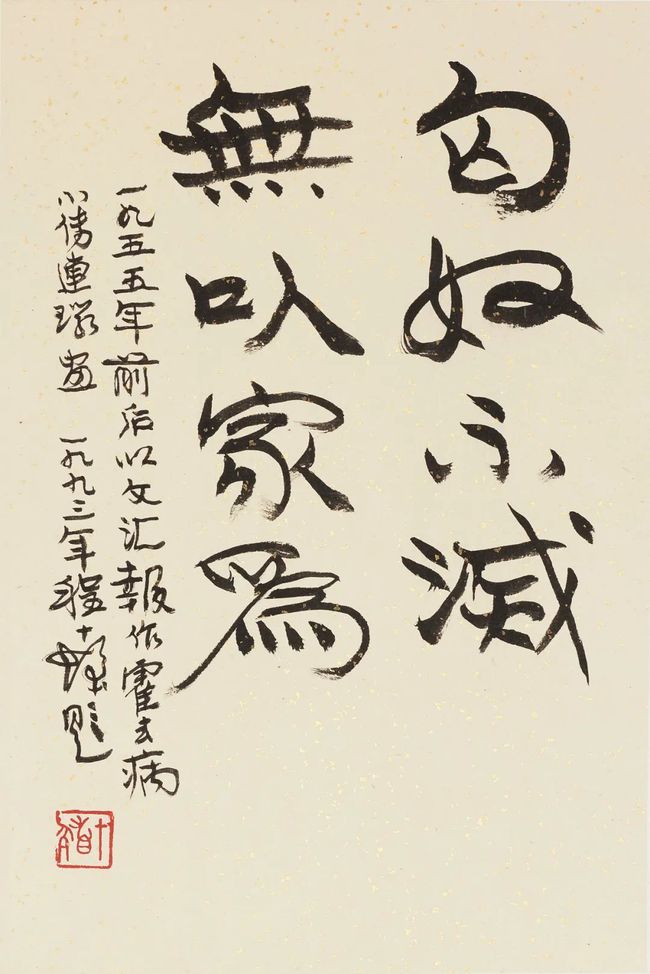 匈奴不滅
無以家爲
一九五五年前后以文汇報作霍去病
小傳連環畫 一九九三年程十髮題